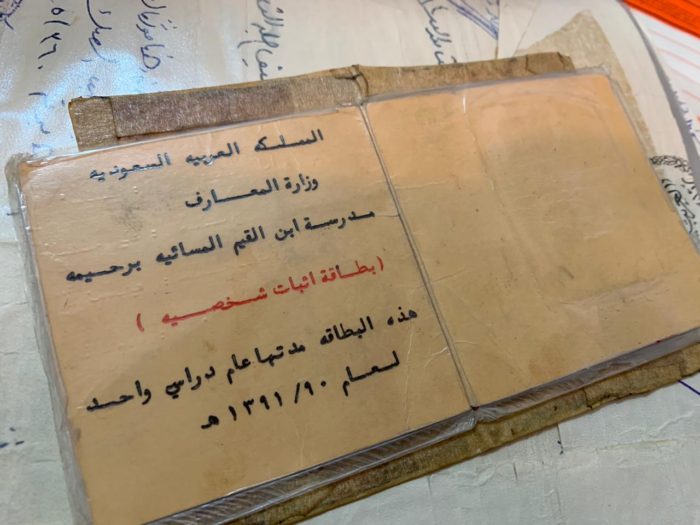 المسلكه العربيه السعوديه
وزارة المعارف
مدرسة ابن القيم المسائيه برحيمه
(بطاقة اثبات شخصيه)
هذه البطاقه مدتها عام دراسي واحد
لعام ٩٠/١٣٩١هـ